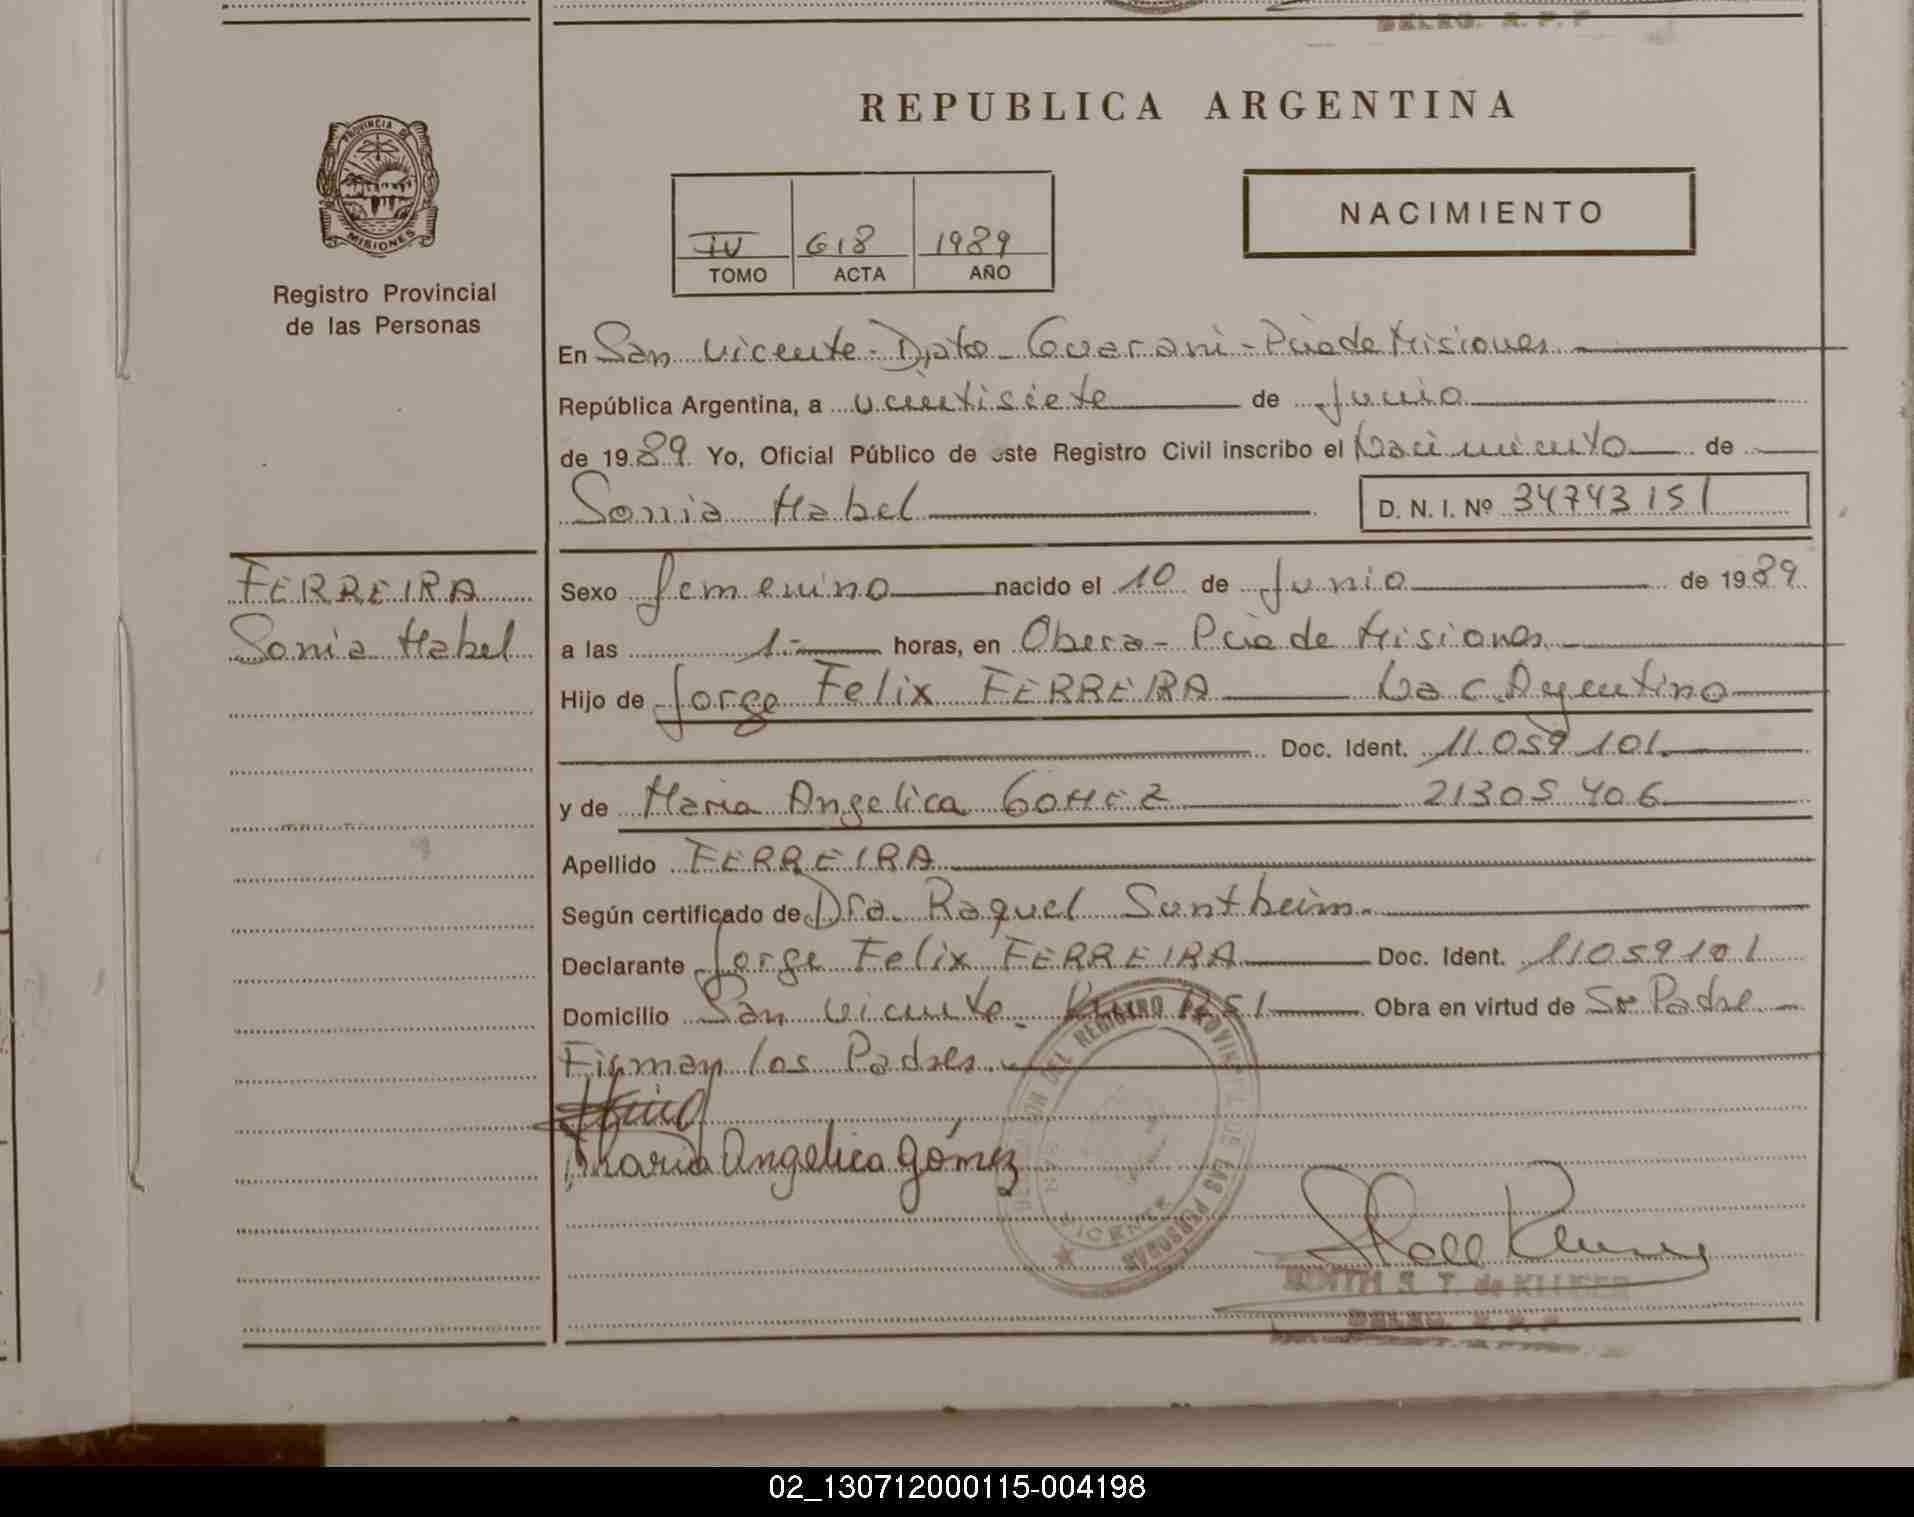 DELEG. R. P. P
REPUBLICA ARGENTINA
PROVINCIA DE
MISIONES
Registro Provincial
de las Personas
IV 618 1989
TOMO ACTA AÑO
NACIMIENTO
En San Vicente - Dpto - Guarani - Pcia de Misiones
República Argentina, a veintisiete de Junio
de 1989 Yo, Oficial Público de este Registro Civil inscribo el Nacimiento de
Sonia Mabel D. N. I. Nº 34743151
FERREIRA
Sonia Mabel
Sexo femenino nacido el 10 de Junio de 1989
a las 1.- horas, en Obera - Pcia de Misiones
Hijo de Jorge Felix FERREIRA Nac Argentino
Doc. Ident. 11.059.101.
y de Maria Angelica GOMEZ 21305406
Apellido FERREIRA
Según certificado de Dra. Raquel Sontheim.
Declarante Jorge Felix FERREIRA Doc. Ident. 11059101
Domicilio San Vicente. 1251 Obra en virtud de Ser Padre
Firman los Padres.
Maria Angelica Gómez
DEL REGISTRO PROVINCIAL DE LAS PERSONAS
SAN VICENTE
EDITH R. T. de KLUSER
DELEG. R. P. P
02_130712000115-004198